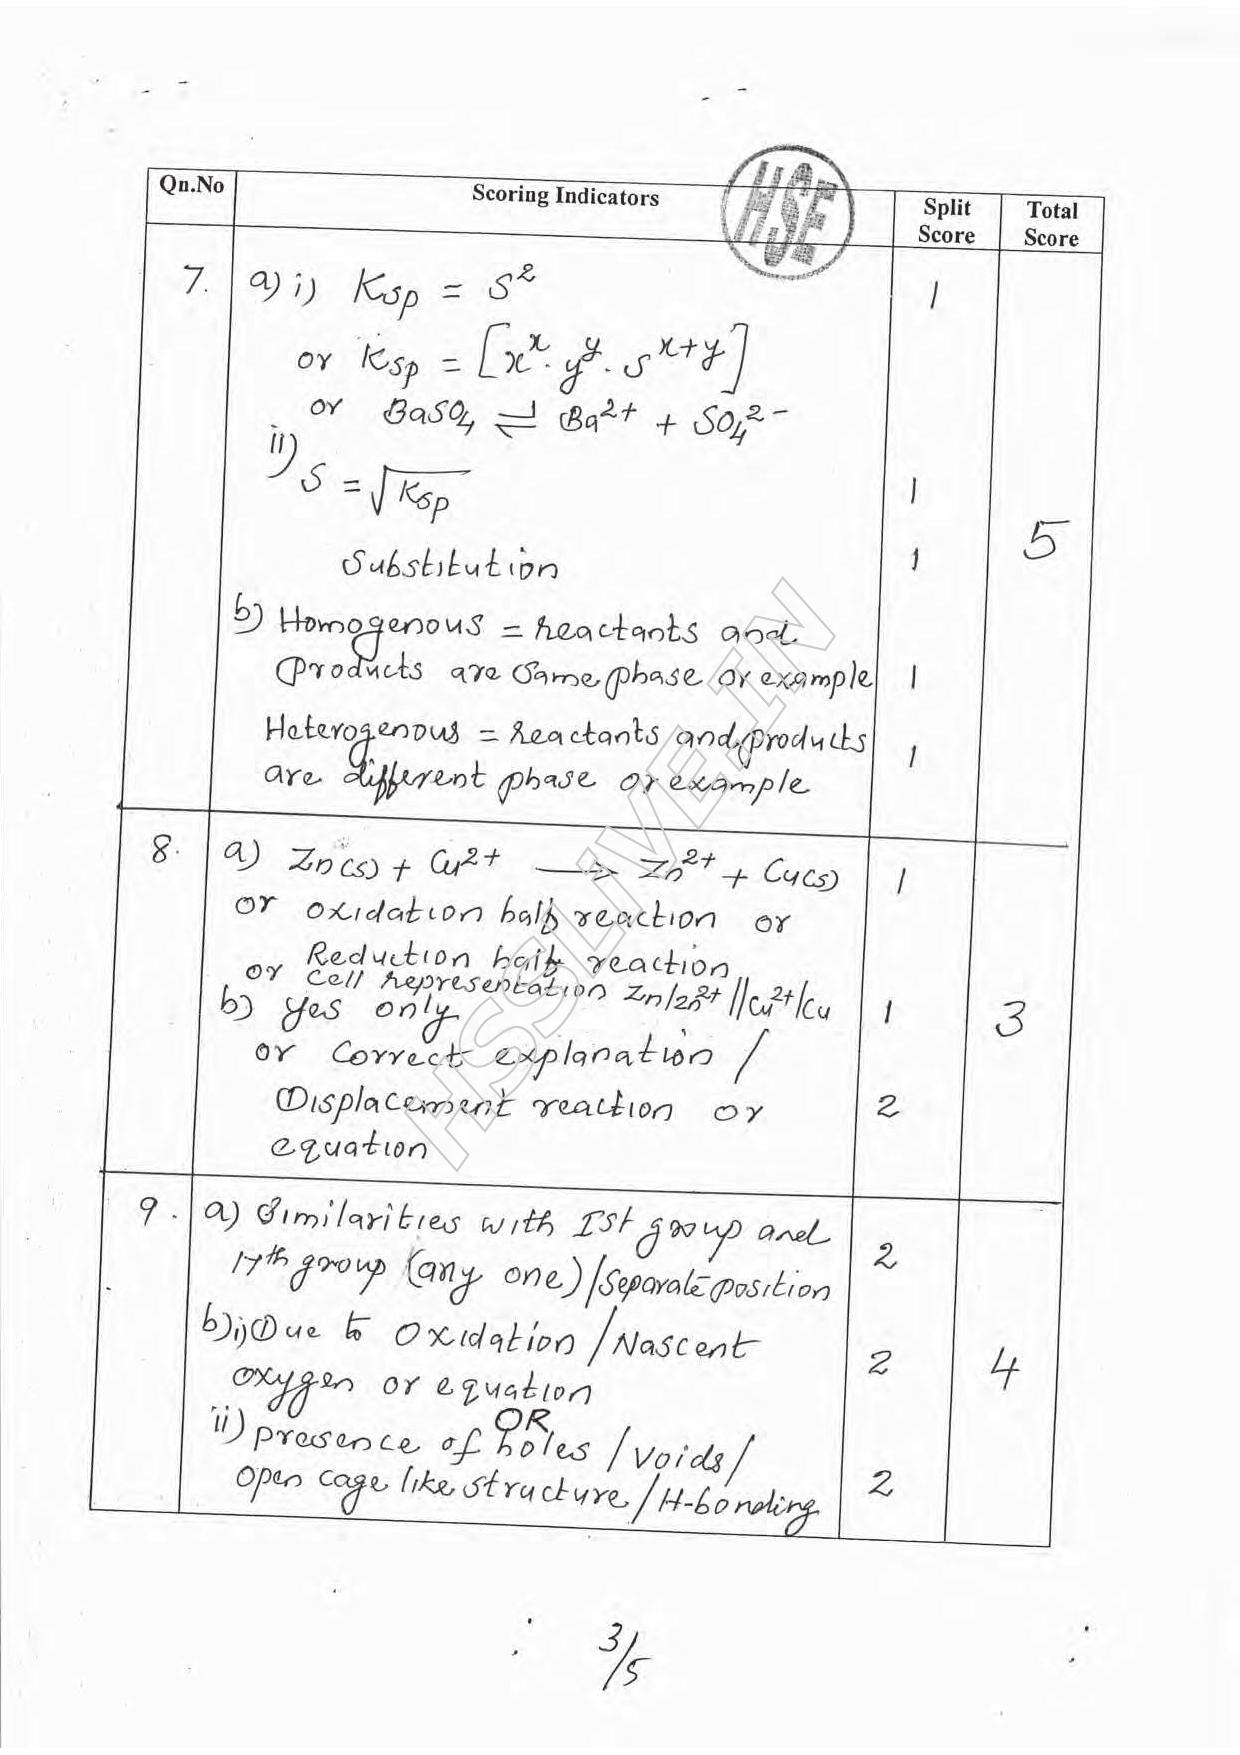 HSE
Qn.No Scoring Indicators Split Score Total Score
7. a) i) Ksp = S² 1
or Ksp = [x^x . y^y . S^x+y]
or BaSO₄ ⇌ Ba²⁺ + SO₄²⁻
ii) S = √Ksp 1
Substitution 1
5
b) Homogenous = reactants and
products are same phase or example 1
Heterogenous = reactants and products 1
are different phase or example
8. a) Zn(s) + Cu²⁺ → Zn²⁺ + Cu(s) 1
or oxidation half reaction or
Reduction half reaction
or cell representation Zn/Zn²⁺//Cu²⁺/Cu
b) Yes only 1
3
or correct explanation /
Displacement reaction or 2
equation
9. a) Similarities with Ist group and
17th group (any one)/separate position 2
b) i) Due to Oxidation / Nascent 2
4
oxygen or equation
OR
ii) presence of holes / voids /
open cage like structure / H-bonding 2
HSSLIVE.IN
3/5